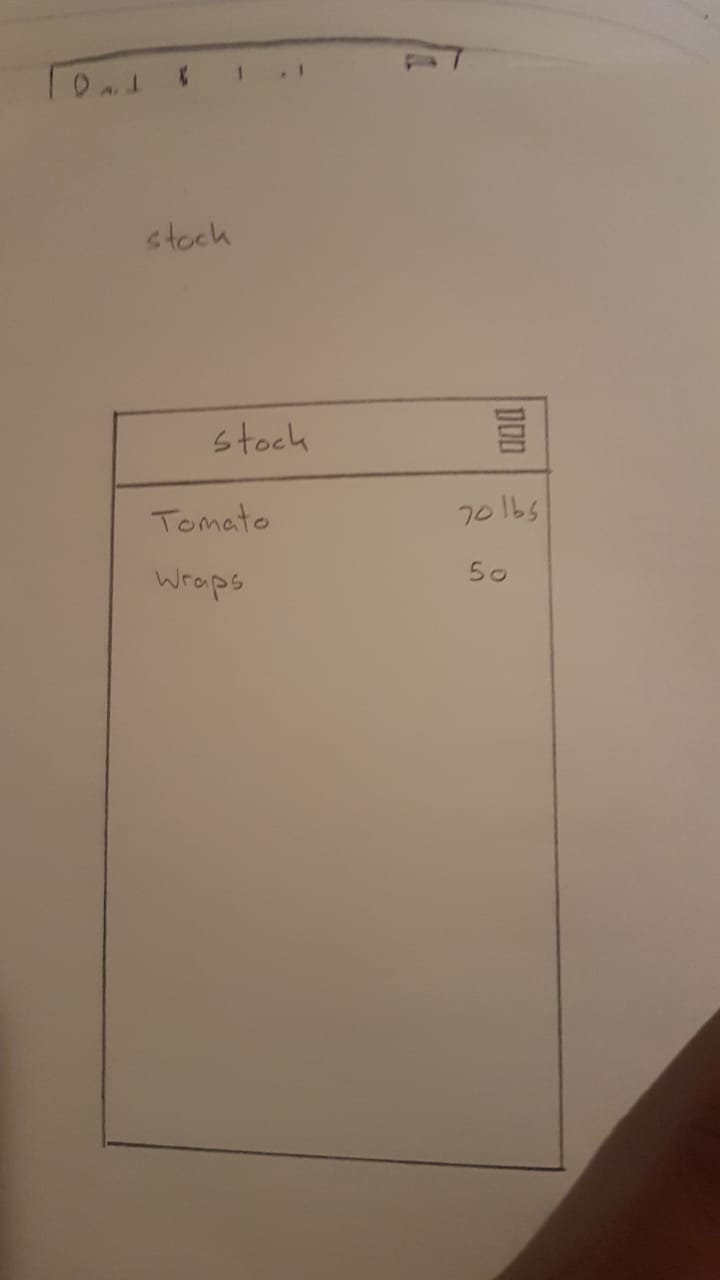 stock
stock
Tomato 70 lbs
Wraps 50